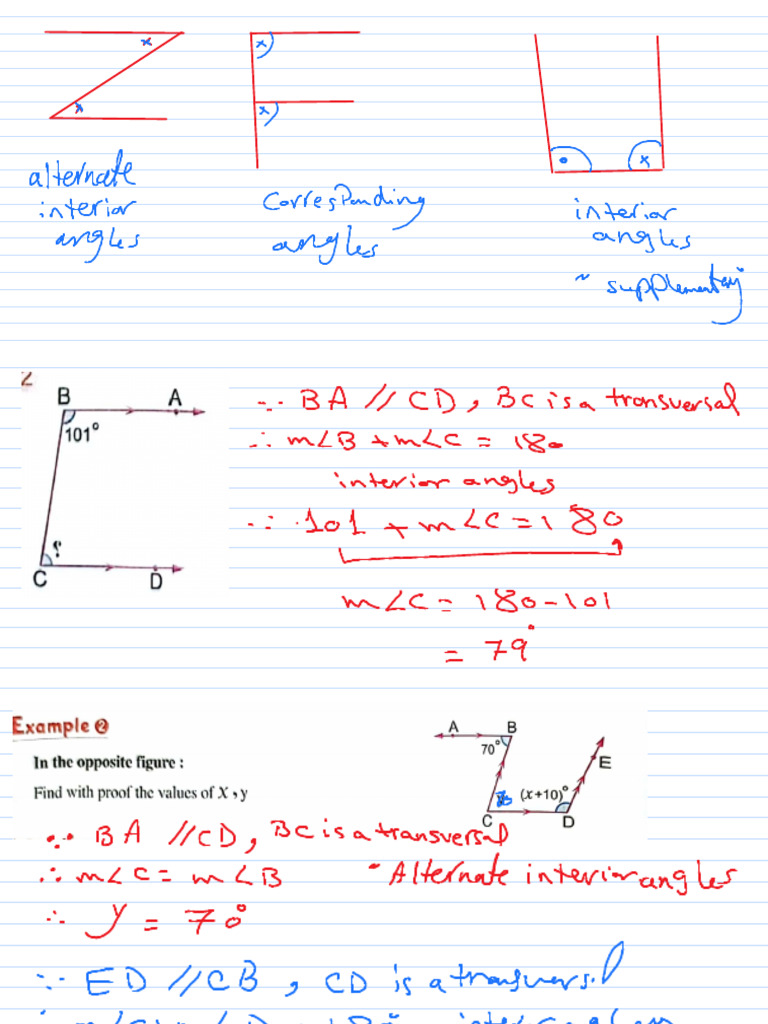 x x x x • x
alternate interior angles
corresponding angles
interior angles
~ supplementary
2
B A
101°
?
C D
∵ BA // CD, BC is a transversal
∴ m∠B + m∠C = 180
interior angles
∵ 101 + m∠C = 180
m∠C = 180 - 101
= 79°
Example 2
In the opposite figure :
Find with proof the values of X , y
A B
70°
E
(x+10)°
C D
∵ BA // CD, BC is a transversal
∴ m∠C = m∠B - Alternate interior angles
∴ y = 70°
∵ ED // CB, CD is a transversal